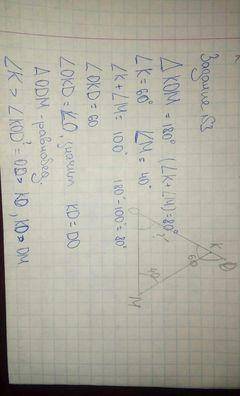 Задание №3
△ KOM = 180° (∠K+∠M)=80°
∠K = 60° ∠M = 40°
∠K+∠M = 100° 180-100=80°
∠OKD = 60
∠OKD = ∠O, значит KD=DO
△ODM - равнобед.
∠K > ∠KOD = OD > KD, KD > DM
O
K
D
60
40
M